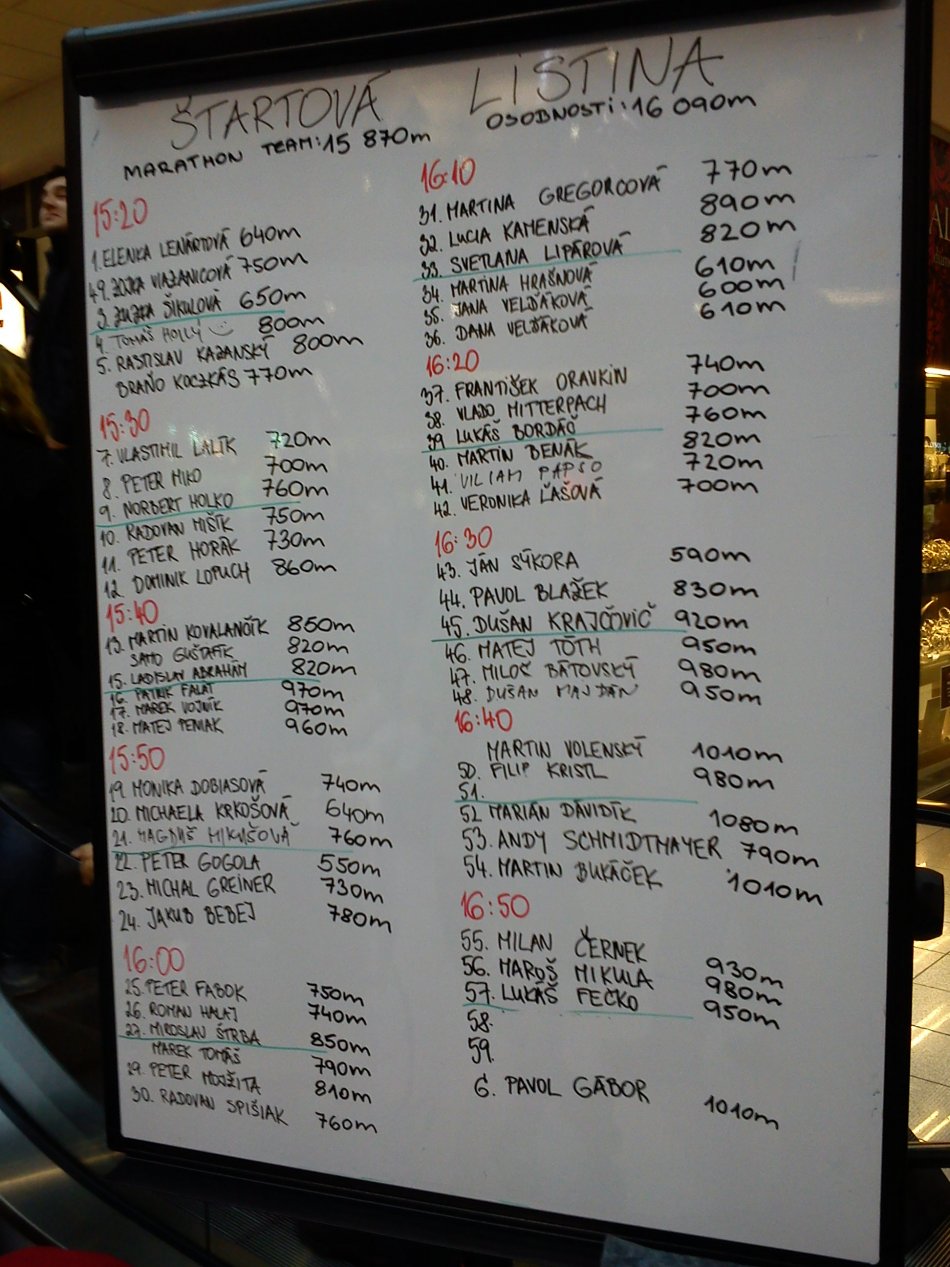 ŠTARTOVÁ LISTINA
MARATHON TEAM: 15 870m OSOBNOSTI: 16 090m
15:20
1. ELENKA LENÁRTOVÁ 640m
49. ZOJKA VIAZANICOVÁ 750m
3. ZUZKA ŠIKULOVÁ 650m
4. TOMÁŠ HOLLÝ 800m
5. RASTISLAV KAZANSKÝ 800m
BRAŇO KOCZKÁS 770m
15:30
7. VLASTIMIL LALÍK 720m
8. PETER MIKO 700m
9. NORBERT HOLKO 760m
10. RADOVAN MIŠÍK 750m
11. PETER HORÁK 730m
12. DOMINIK LOPUCH 860m
15:40
13. MARTIN KOVALANČÍK 850m
SAMO GUŠTAFÍK 820m
15. LADISLAV ABRAHÁM 820m
16. PATRIK FALAT 970m
17. MAREK VOJNÍK 970m
18. MATEJ PENIAK 960m
15:50
19. MONIKA DOBIASOVÁ 740m
20. MICHAELA KRKOŠOVÁ 640m
21. MAGDUŠ MIKUŠOVÁ 760m
22. PETER GOGOLA 550m
23. MICHAL GREINER 730m
24. JAKUB BEBEJ 780m
16:00
25. PETER FABOK 750m
26. ROMAN HALAJ 740m
27. MIROSLAV ŠTRBA 850m
MAREK TOMÁŠ 790m
29. PETER 810m
30. RADOVAN SPIŠIAK 760m
16:10
31. MARTINA GREGORCOVÁ 770m
32. LUCIA KAMENSKÁ 890m
33. SVETLANA LIPÁROVÁ 820m
34. MARTINA HRAŠNOVÁ 610m
35. JANA VELĎÁKOVÁ 600m
36. DANA VELĎÁKOVÁ 610m
16:20
37. FRANTIŠEK ORAVKIN 740m
38. VLADO MITTERPACH 700m
39. LUKÁŠ BORDÁŠ 760m
40. MARTIN BENÁK 820m
41. VILIAM PAPŠO 720m
42. VERONIKA ĽAŠOVÁ 700m
16:30
43. JÁN SÝKORA 590m
44. PAVOL BLAŽEK 830m
45. DUŠAN KRAJČOVIČ 920m
46. MATEJ TÓTH 950m
47. MILOŠ BÁTOVSKÝ 980m
48. DUŠAN MAJDÁN 950m
16:40
MARTIN VOLENSKÝ 1010m
50. FILIP KRISTL 980m
51.
52 MARIÁN DÁVIDÍK 1080m
53. ANDY SCHMIDTMAYER 790m
54. MARTIN BUKÁČEK 1010m
16:50
55. MILAN ČERNEK 930m
56. MAROŠ MIKULA 980m
57. LUKÁŠ FEČKO 950m
58.
59.
6. PAVOL GÁBOR 1010m